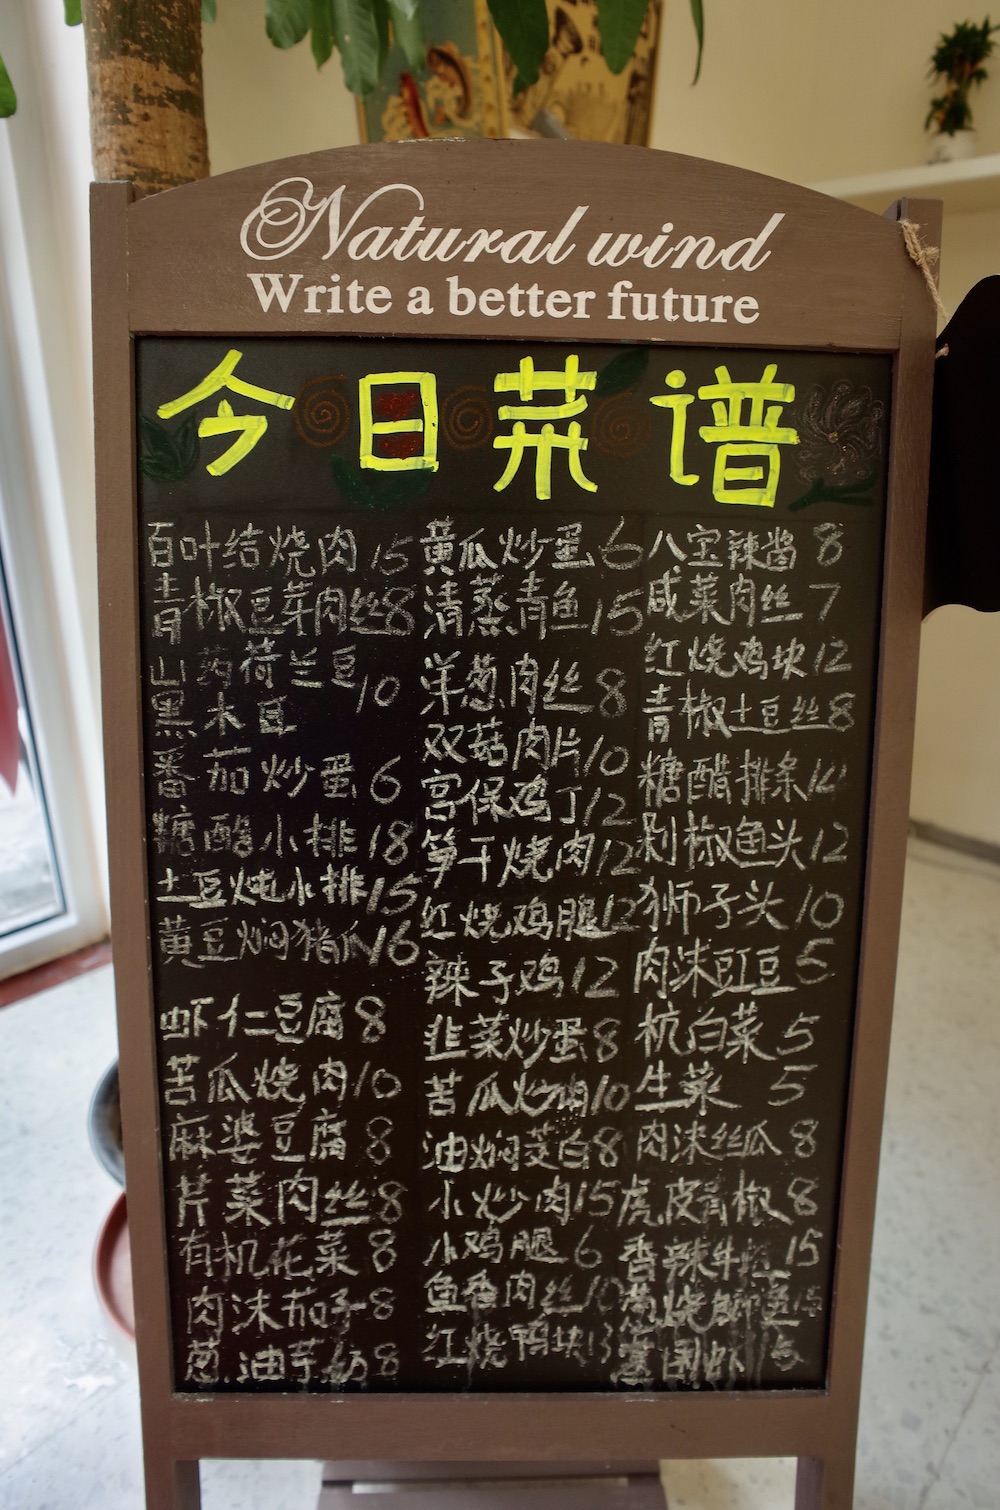 Natural wind
Write a better future
今日菜谱
百叶结烧肉 15
青椒豆芽肉丝 8
山药荷兰豆 10
黑木耳
番茄炒蛋 6
糖醋小排 18
土豆炖小排 15
黄豆焖猪爪 16
虾仁豆腐 8
苦瓜烧肉 10
麻婆豆腐 8
芹菜肉丝 8
有机花菜 8
肉沫茄子 8
葱油芋艿 8
黄瓜炒蛋 6
清蒸青鱼 15
洋葱肉丝 8
双菇肉片 10
宫保鸡丁 12
笋干烧肉 12
红烧鸡腿 12
辣子鸡 12
韭菜炒蛋 8
苦瓜炒肉 10
油焖茭白 8
小炒肉 15
小鸡腿 6
鱼香肉丝 10
红烧鸭块 13
八宝辣酱 8
咸菜肉丝 7
红烧鸡块 12
青椒土豆丝 8
糖醋排条
剁椒鱼头 12
狮子头 10
肉沫豇豆 5
杭白菜 5
生菜 5
肉沫丝瓜 8
虎皮青椒 8
香辣牛 15
葱烧